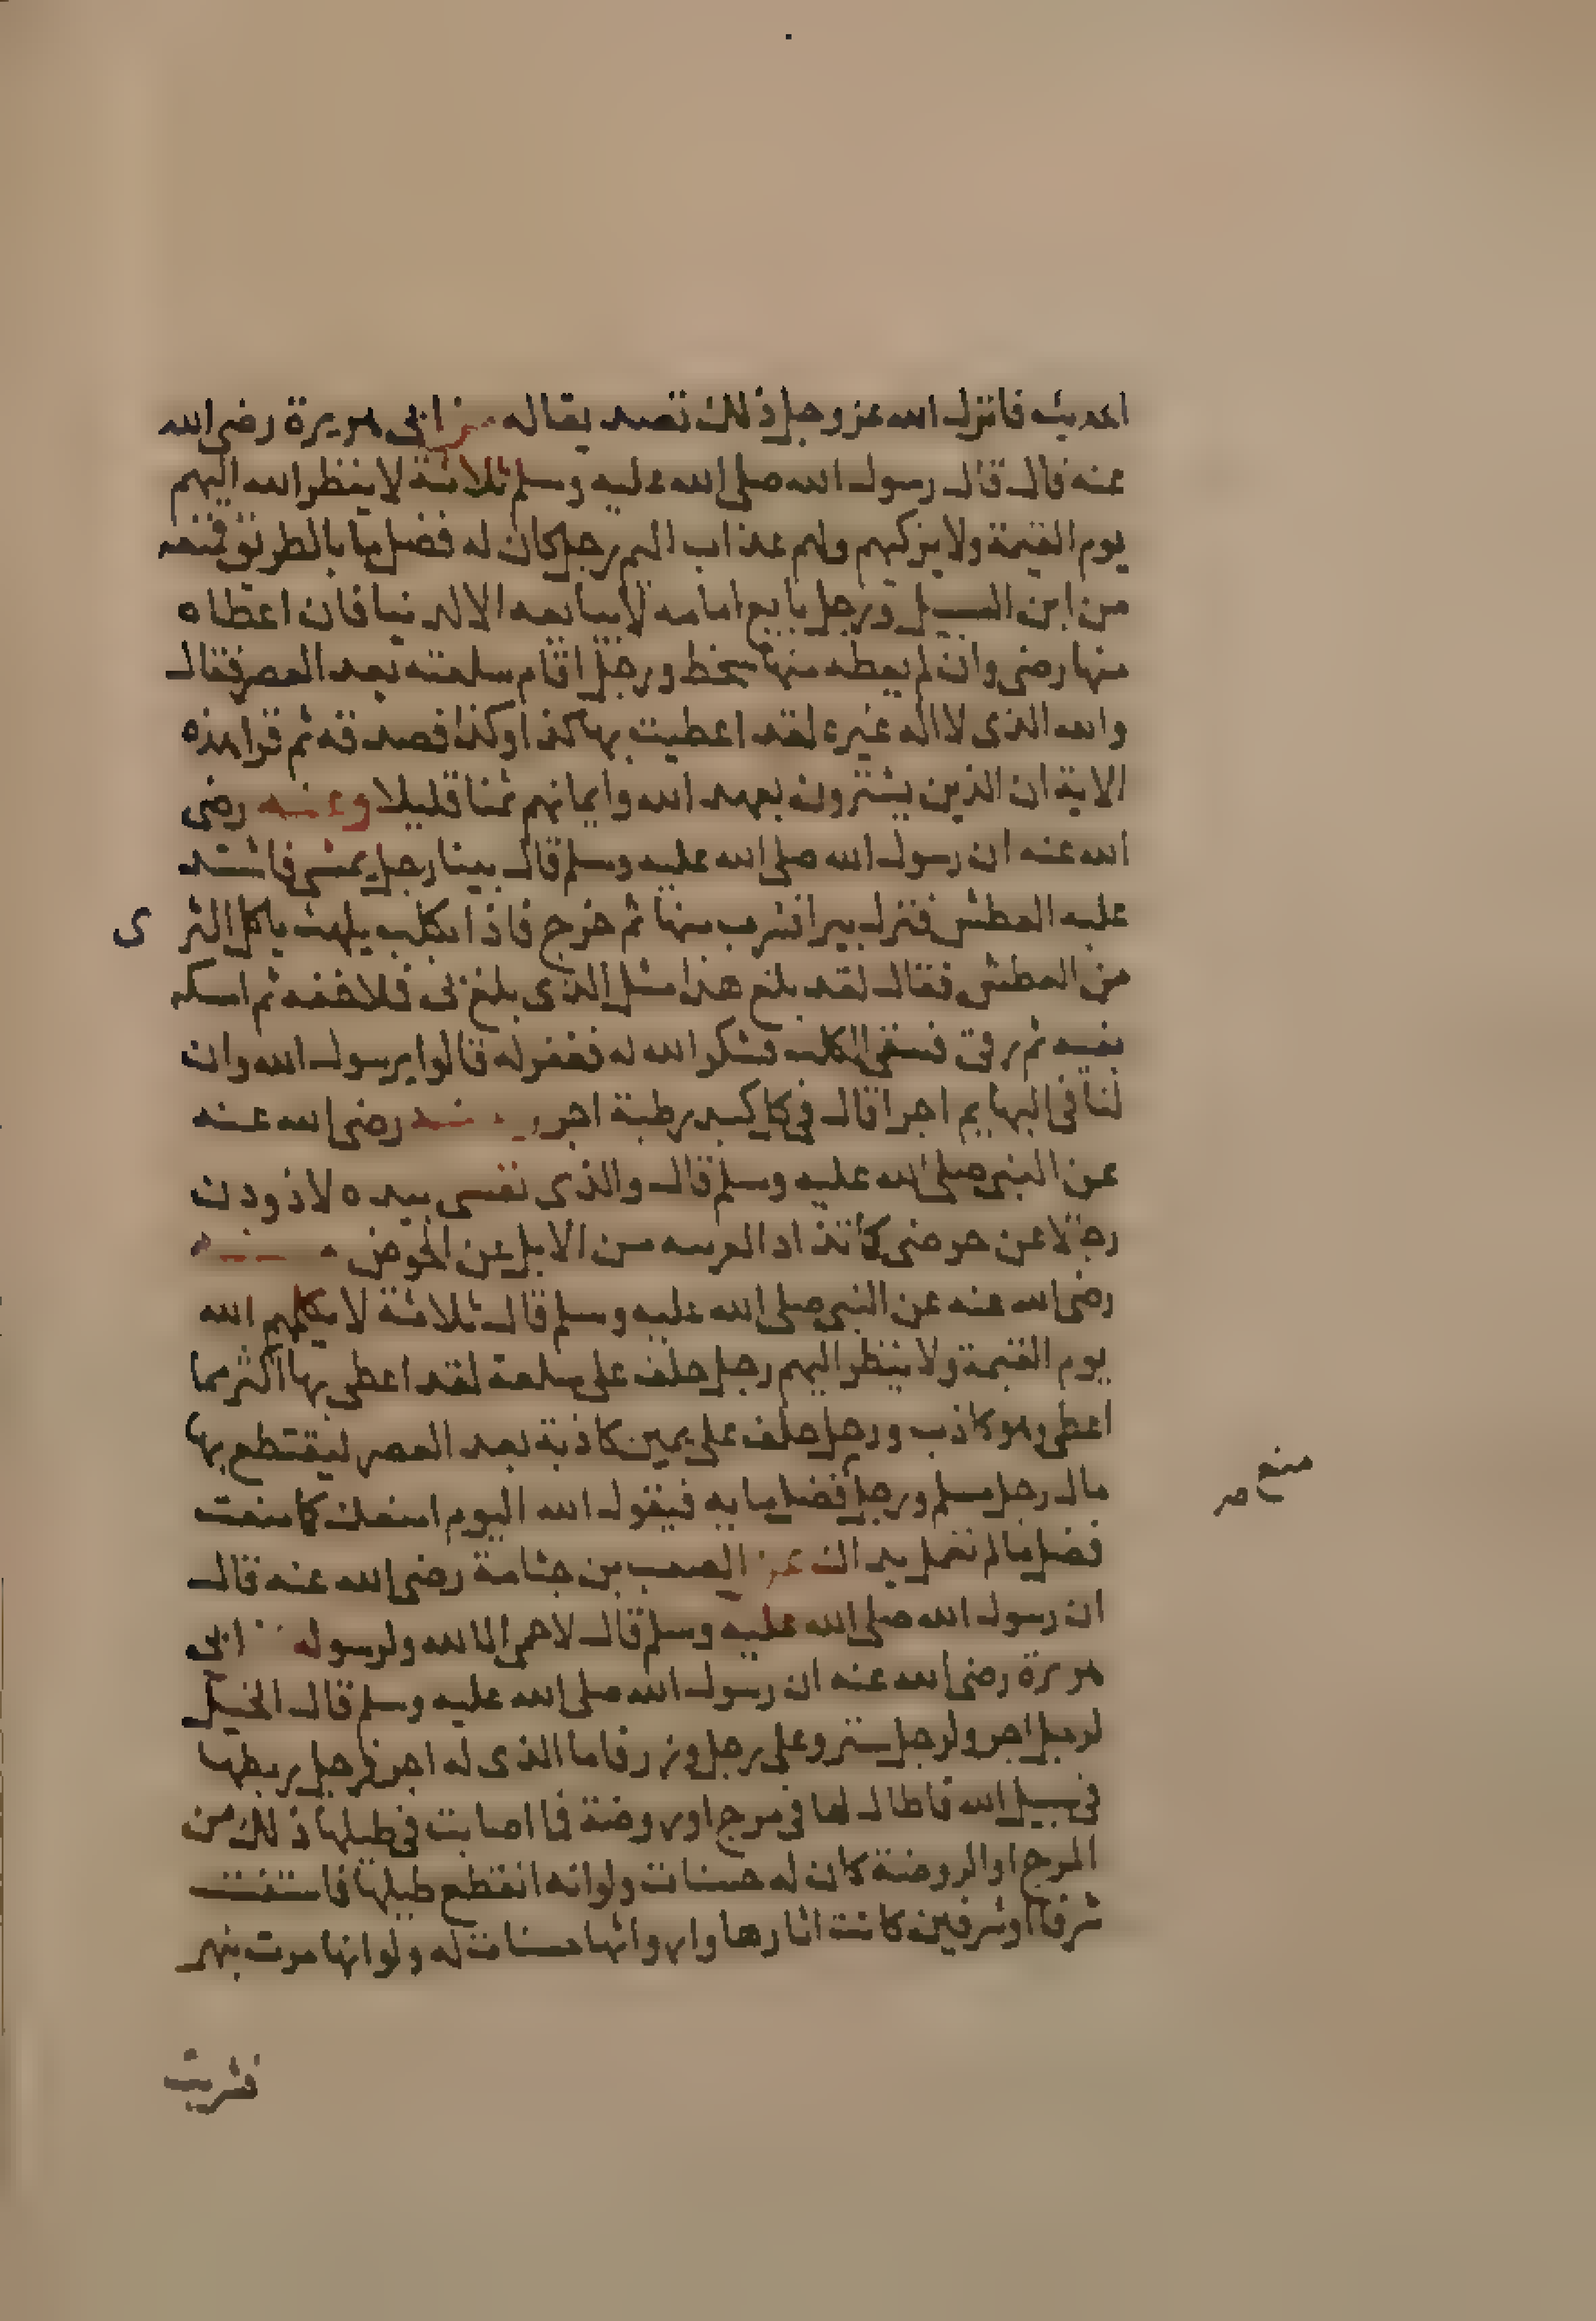 الحديث فانزل الله عز وجل ذلك تصديقا له عن ابى هريرة رضى الله
عنه قال قال رسول الله صلى الله عليه وسلم ثلاثة لا ينظر الله اليهم
يوم القيمة ولا يزكيهم ولهم عذاب اليم رجل كان له فضل ما بالطريق فمنعه
من ابن السبيل ورجل بايع امامه لا يبايعه الا لدنيا فان اعطاه
منها رضى وان لم يعطه منها سخط ورجل اقام سلعته بعد العصر فقال
والله الذى لا اله غيره لقد اعطيت بها كذا وكذا فصدقه ثم قرا هذه
الاية ان الذين يشترون بعهد الله وايمانهم ثمنا قليلا وعنه رضى
الله عنه ان رسول الله صلى الله عليه وسلم قال بينا رجل يمشى فاشتد
عليه العطش فنزل بيرا فشرب منها ثم خرج فاذا بكلب يلهث ياكل الثرى
من العطش فقال لقد بلغ هذا مثل الذى بلغ بى فملا خفه ثم امسكه
بفيه ثم رقى فسقى الكلب فشكر الله له فغفر له قالوا يرسول الله وان
لنا فى البهايم اجرا قال فى كل كبد رطبة اجر وعنه رضى الله عنه
عن النبى صلى الله عليه وسلم قال والذى نفسى بيده لاذودن
رجالا عن حوضى كما تذاد الغريبه من الابل عن الحوض وعنه
رضى الله عنه عن النبى صلى الله عليه وسلم قال ثلاثة لا يكلمهم الله
يوم القيمة ولا ينظر اليهم رجل حلف على سلعة لقد اعطى بها اكثر مما
اعطى وهو كاذب ورجل حلف على يمين كاذبة بعد العصر ليقتطع بها
مال رجل مسلم ورجل فضل مايه فيقول الله اليوم امنعك كما منعت
منع صح
فضل ما لم تعمل يداك عن الصعب بن جثامة رضى الله عنه قال
ان رسول الله صلى الله عليه وسلم قال لا حمى الا لله ولرسوله عن ابى
هريرة رضى الله عنه ان رسول الله صلى الله عليه وسلم قال الخيل
لرجل اجر ولرجل ستر وعلى رجل وزر فاما الذى له اجر فرجل ربطها
فى سبيل الله فاطال لها فى مرج او روضة فما اصابت فى طيلها ذلك من
المرج او الروضة كان له حسنات ولو انه انقطع طيلها فاستنت
شرفا او شرفين كانت اثارها وارواثها حسنات له ولو انها مرت بنهر
فشربت